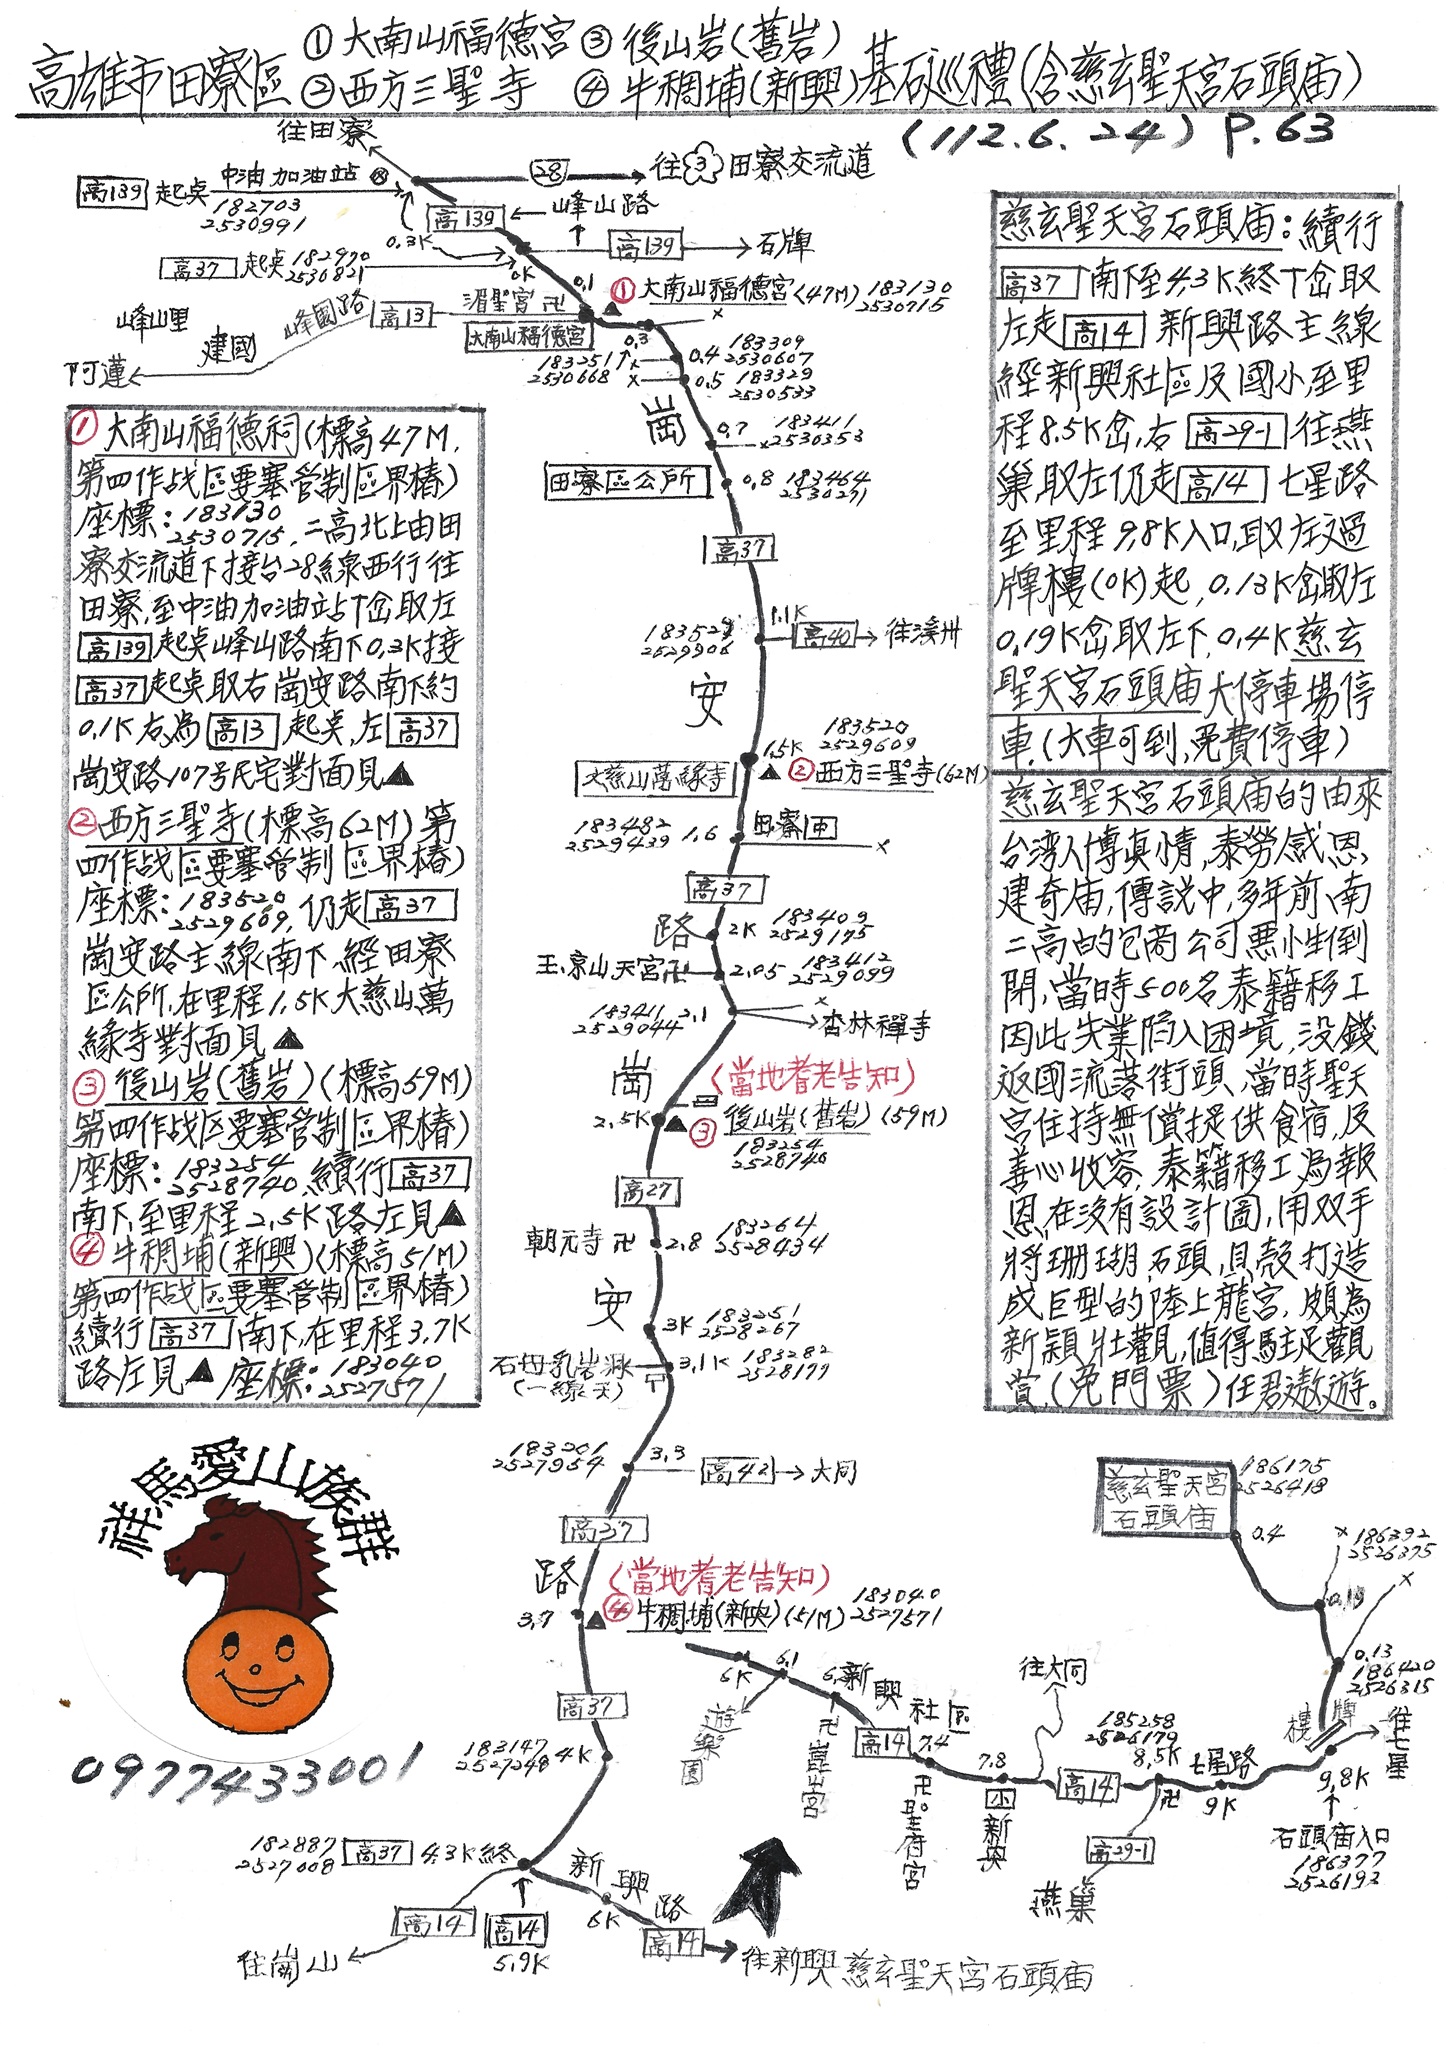 ①大南山福德宮③後山岩(舊岩)
高雄市田寮區②西方三聖寺④牛稠埔(新興)基石巡禮(含慈玄聖天宮石頭庙)
(112.6.24) P.63
往田寮
高139 起桌 中油加油站
182703
2530991
28 往3田寮交流道
高139 峰山路
0.3K
高139 石牌
高37 起桌 182970
2530821
0K
0.1
①大南山福德宮(47M) 183130
2530715
峰山里 建國 峰國路 高13 湄聖宮卍
大南山福德宮
阿蓮
0.3
183251
2530668
0.4 183309
2530607
0.5 183329
2530533
崗
0.7 183411
2530353
田寮區公所 0.8 183464
2530271
高37
1.1K
2529906
高40 往溪州
安
1.5K 183520
2529609
大慈山萬緣寺 ②西方三聖寺(62M)
183482
2529439 1.6 田寮
高37
路 2K 183409
2529175
玉京山天宮卍 2.05 183412
2529099
183411
2529044 2.1
杏林禪寺
崗 (當地耆老告知)
2.5K ③後山岩(舊岩)(59M)
183254
2528740
高27
朝元寺卍 2.8 183264
2528434
安 3K 183251
2528267
石母乳岩洞 3.1K 183282
2528179
(一線天)
183201
2527954 3.3 高42 大同
高37
路 (當地耆老告知)
3.7 ④牛稠埔(新興)(51M) 183040
2527571
高37
183147
2527248 4K
182887
2527008 高37 4.3K終
新興路
6K
高14
往崗山
高14
5.9K
高14 往新興慈玄聖天宮石頭庙
①大南山福德祠(標高47M,
第四作战區要塞管制區界樁)
座標:183130
2530715,二高北上由田
寮交流道下接台28線西行往
田寮,至中油加油站丅岔取左
高139起桌峰山路南下0.3K接
高37起桌取右崗安路南下約
0.1K右為高13起桌,左高37
崗安路107号民宅對面見▲
②西方三聖寺(標高62M)第
四作战區要塞管制區界樁)
座標:183520
2529609,仍走高37
崗安路主線南下,經田寮
區公所,在里程1.5K大慈山萬
緣寺對面見▲
③後山岩(舊岩)(標高59M)
第四作战区要塞管制區界樁)
座標:183254
2528740,續行高37
南下,至里程2.5K路左見▲
④牛稠埔(新興)(標高51M)
第四作战區要塞管制區界樁)
續行高37南下,在里程3.7K
路左見▲座標:183040
2527571
慈玄聖天宮石頭庙:續行
高37南下至4.3K終丅岔取
左走高14新興路主線
經新興社區及國小至里
程8.5K岔,右高29-1往燕
巢取左仍走高14七星路
至里程9.8K入口,取左過
牌樓(0K)起,0.13K岔取左
0.19K岔取左下,0.4K慈玄
聖天宮石頭庙大停車場停
車.(大車可到,免費停車)
慈玄聖天宮石頭庙的由來
台湾人博真情,泰勞感恩
建奇庙,傳説中,多年前,南
二高的包商公司惡性倒
閉,當時500名泰籍移工
因此失業陷入困境,没錢
返國流落街頭,當時聖天
宮住持無償提供食宿,及
善心收容,泰籍移工為報
恩,在没有設計圖,用双手
將珊瑚,石頭,貝殼打造
成巨型的陸上龍宮,頗為
新穎壯觀,值得駐足觀
賞,(免門票)任君遨遊。
慈玄聖天宮
石頭庙
186175
2526418
0.4
186392
2526375
0.19
0.13
186420
2526315
牌樓
往七星
9.8K
石頭庙入口
186377
2526193
七星路
9K
185258
2526179
8.5K
卍
高29-1
燕巢
高14
往大同
7.8
小
新興
7.4
卍聖府宮
高14
新興社區
卍崑山宮
6.1
遊樂園
6K
祥馬愛山族群
0977433001